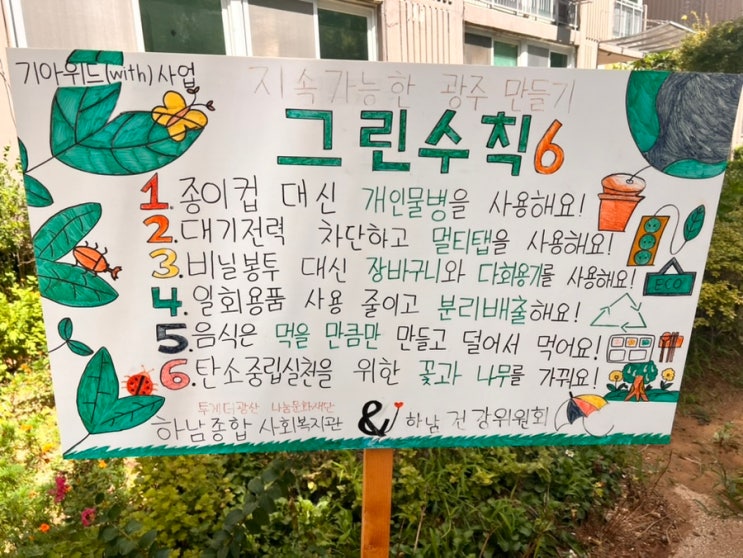 기아위드(with)사업
지속가능한 광주 만들기
그린수칙6
1.종이컵 대신 개인물병을 사용해요!
2.대기전력 차단하고 멀티탭을 사용해요!
3.비닐봉투 대신 장바구니와 다회용기를 사용해요!
4.일회용품 사용 줄이고 분리배출해요!
5.음식은 먹을 만큼만 만들고 덜어서 먹어요!
6.탄소중립실천을 위한 꽃과 나무를 가꿔요!
ECO
투게더광산 나눔문화재단
하남종합 사회복지관 & 하남 건강위원회